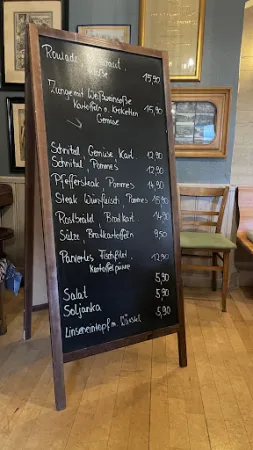 Roulade, Kraut,
Klöße 15,90
Zunge mit Weißweinsoße
Kartoffeln o. Kroketten 15,90
Gemüse
Schnitzel Gemüse Kart. 12,90
Schnitzel, Pommes 12,90
Pfeffersteak, Pommes 14,90
Steak Würzfleisch, Pommes 15,90
Rostbrätl, Bratkart. 14,90
Sülze, Bratkartoffeln 9,50
Paniertes Fischfilet, 12,90
Kartoffelpüree
Salat 5,90
Soljanka 5,90
Linseneintopf m. 5,90